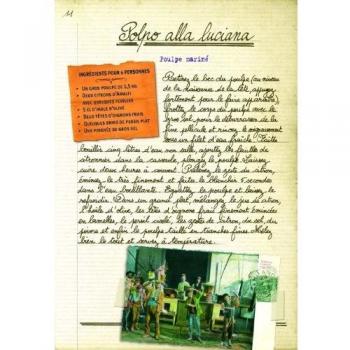 11
Polpo alla luciana
Poulpe mariné
INGRÉDIENTS POUR 6 PERSONNES
• UN GROS POULPE DE 1,5 KG
• DEUX CITRONS D'AMALFI
AVEC QUELQUES FEUILLES
• 5 CL D'HUILE D'OLIVE
• DEUX TÊTES D'OIGNONS FRAIS
• QUELQUES BRINS DE PERSIL PLAT
• UNE POIGNÉE DE GROS SEL
Retirez le bec du poulpe (au niveau
de la de la tête, appuyez
fortement pour le faire apparaître).
Frottez le corps du poulpe avec le
gros sel pour le débarrasser de la
fine pellicule et rincez-le soigneusement
sous un filet d'eau fraîche. Faites
bouillir cinq litres d'eau non salée, ajoutez les feuilles de
citronnier dans la casserole, plongez le poulpe. Laissez
cuire deux heures à couvert. Prélevez le zeste du citron,
émincez-le très finement et faites-le blanchir 5 secondes
dans l'eau bouillante. Égouttez le poulpe et laissez-le
refroidir. Dans un grand plat, mélangez le jus de citron,
l'huile d'olive, les têtes d'oignons frais finement émincées
en lamelles, le persil ciselé, les zestes de citron, du sel, du
poivre et enfin le poulpe taillé en tranches fines. Mélez
bien le tout et servez à température.